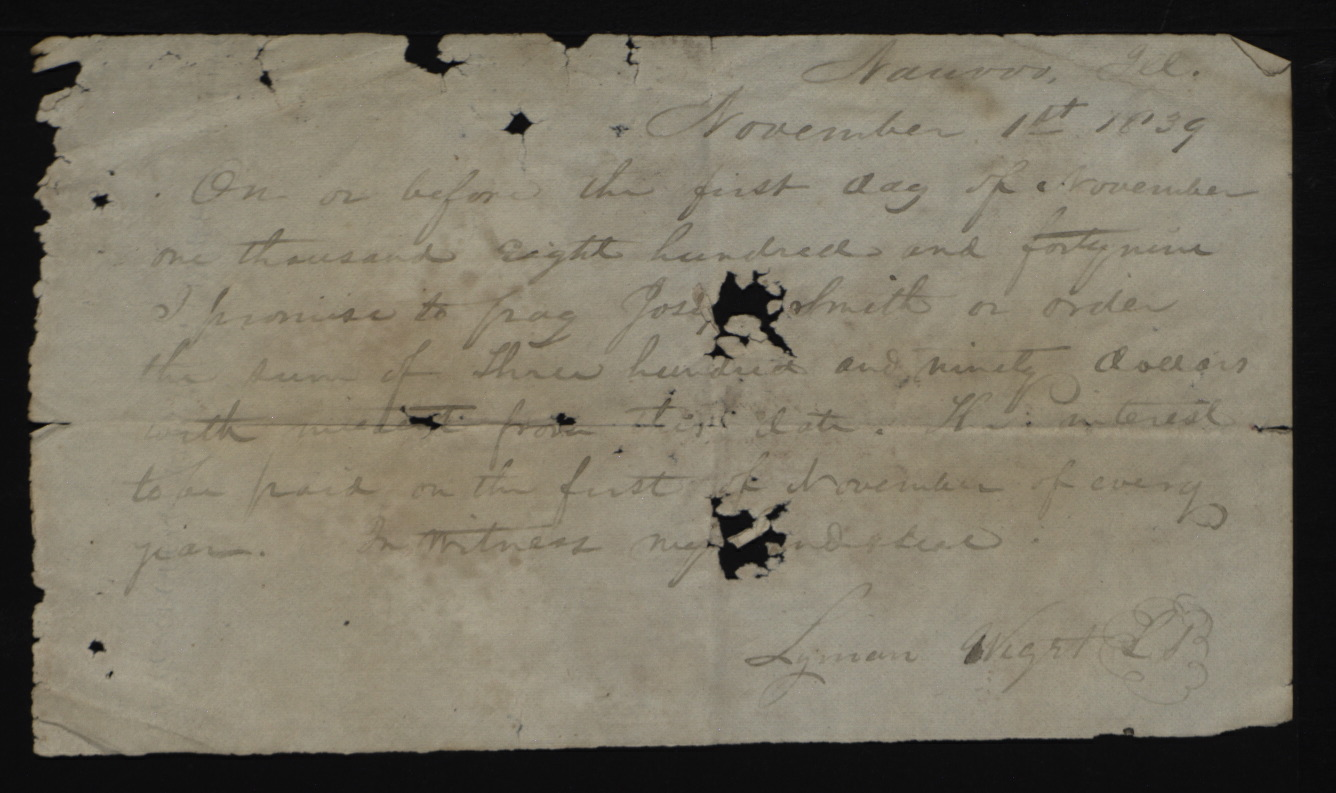 Nauvoo, Ill.
November 1st 1839
On or before the first day of November
one thousand eight hundred and fortynine
I promise to pay Jose Smith or order
the sum of three hundred and ninety dollars
with interest from this date. The interest
to be paid on the first of November of every
year. In witness my nd & seal
Lyman Wight